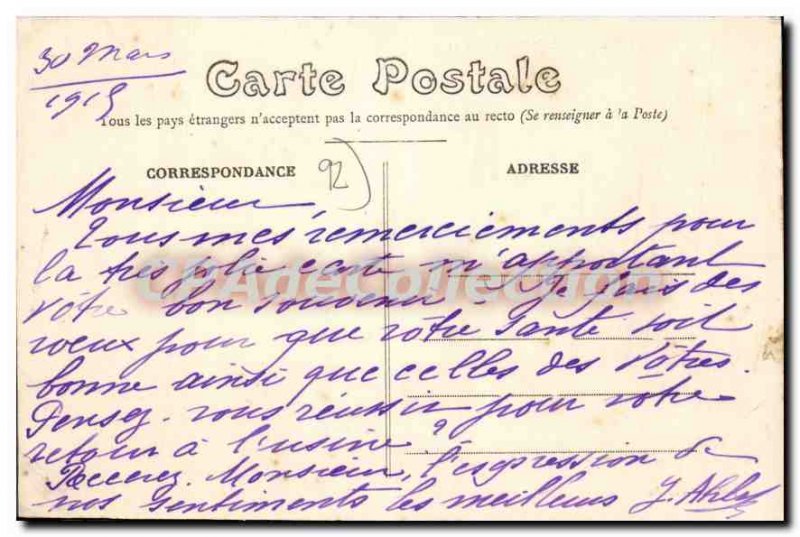 30 Mars
1915
Carte Postale
Tous les pays étrangers n'acceptent pas la correspondance au recto (Se renseigner à la Poste)
CORRESPONDANCE
92
ADRESSE
Monsieur,
Tous mes remerciements pour
la très jolie carte m'apportant
vôtre bon souvenir. Je fais des
voeux pour que vôtre santé soit
bonne ainsi que celles des vôtres.
Pensez-vous réussir pour votre
retour à l'usine ?
Recevez, Monsieur, l'expression de
nos sentiments les meilleurs J.
CPAdeCollection